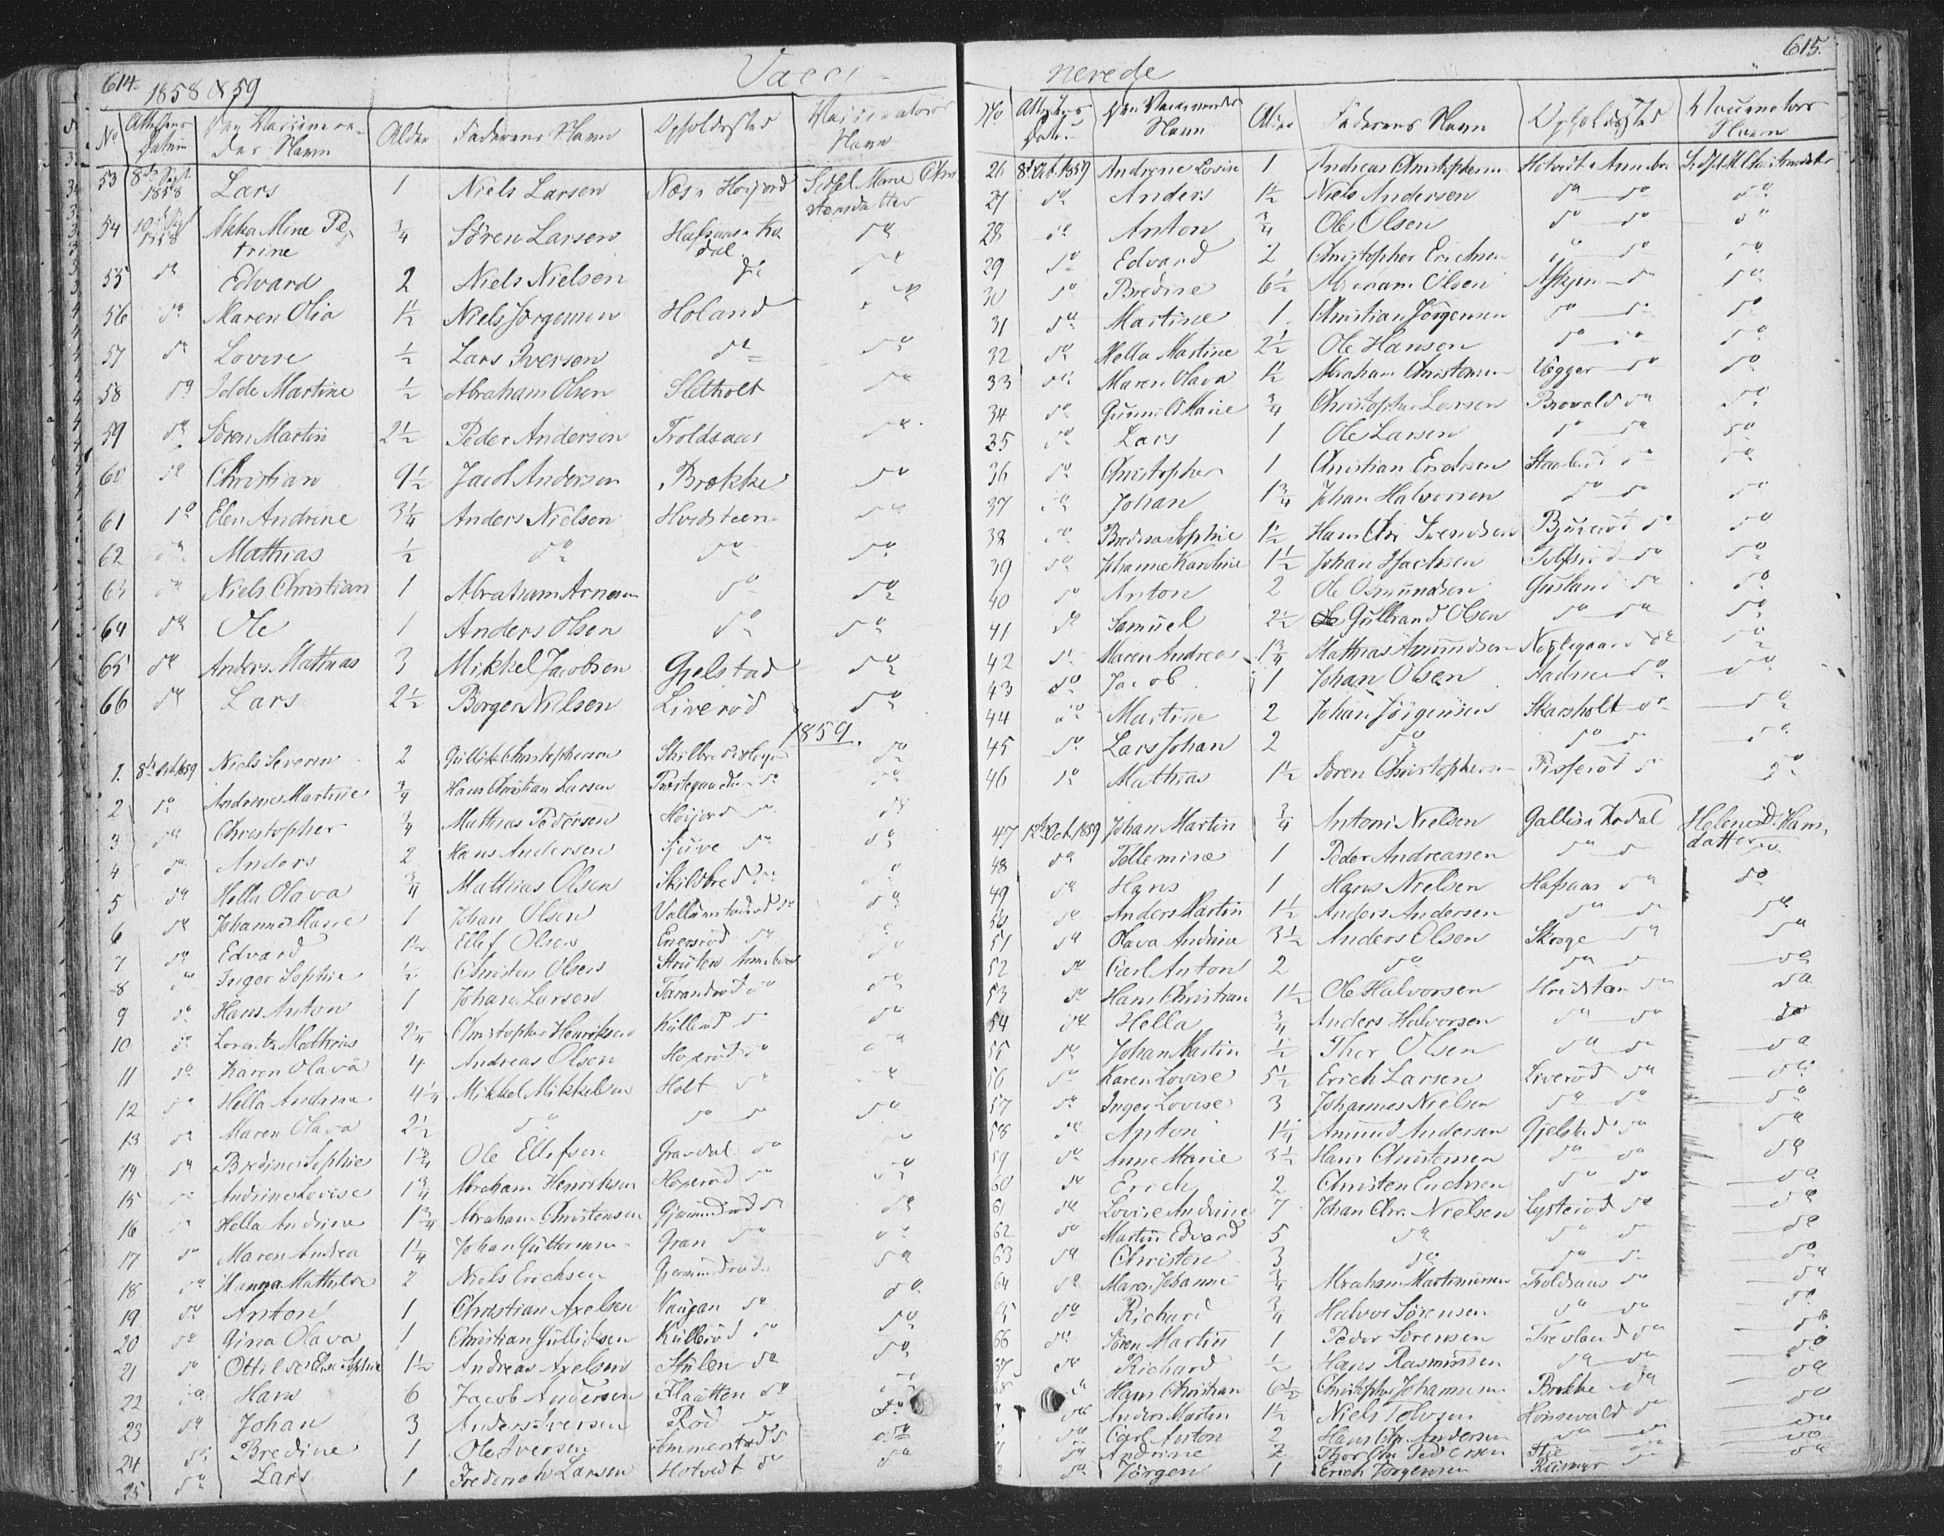 614. 1858 & 59 Vacci-
No Attestens Datum Den Vaccinere- des Navn Alder Faderens Navn Opholdssted Vaccinators Navn
53 8de Sept 1858 Lars 1 Niels Larsen Næs i Høijord Sidsel Marie Chri stensdatter
54 1858 Anna Mine Pe- trine 3/4 Søren Larsen Hafsaas i Ko dal do
55 do Edvard 2 Niels Nielsen do do
56 do Maren Olia 1½ Niels Jørgensen Holand do
57 do Lovise ½ Lars Iversen do do
58 do Martine ½ Abraham Olsen Sletholt do
59 do Søren Martin 2½ Peder Andersen Troldsaas do
60 do Christian 9½ Jacob Andersen Brekke do
61 do Elen Andrine 3¼ Anders Nielsen Hvidsteen do
62 do Mathias ½ do do do
63 do Niels Christian 1 Abraham Arnesen do do
64 do Ole 1 Anders Olsen do do
65 do Anders Mathias 3 Mikkel Jacobsen Gjelstad do
66 do Lars 2½ Børger Nielsen Liverød do
1859.
1. 8de Oct 1859 Niels Severin 2 Gullik Christophersen do
2 do Martine 3/4 Hans Christian Larsen do
3 do Christopher 3/4 Mathias Pedersen Høijord do do
4 do Anders 2 Hans Andersen Gjuve do do
5 do Hella Olava 3/4 Mathias Olsen Skilsbred do do
6 do Johanne Marie 1 Johan Olsen do
7 do Edvard 1½ Ellef Olsen do do
8 do Inger Sophie ½ Christen Olsen Andebu do
9 do Hans Anton 1 Johan Larsen Tarandrød do do
10 do Lorentz Mathias 2¼ Christopher Henriksen Kullerød do do
11 do Karen Olava 4 Andreas Olsen do do
12 do Hella Andrine 4¼ Mikkel Mikkelsen Holt do do
13 do Maren Olava 2½ do do do do
14 do Bredine Sophie 1¾ Ole Ellefsen Gravdal do do
15 do Andrine Lovise 1¾ Abraham Henriksen do do
16 do Hella Andrine 1¾ Abraham Christensen Gjermundrød do do
17 do Maren Andrea 1¼ Johan Guttormsen Gran do do
18 do Hanna Mathilde 2 Niels Erichsen Gjermundrød do do
19. do Anton 1 Christian Axelsen do do
20 do Gina Olava 1 Christian Gullichsen Kullerød do do
21 do Sophie 1½ Andreas Axelsen Stulen do do
22 do Hans 6 Jacob Andersen Flaatten do do
23 do Johan 3 Anders Iversen Rød do do
24 do Bredine 1 Ole Iversen Ommerstad do do
25 do Lars 1 Frederich Larsen Hotvedt do do
nerede 615.
No Attestens Datum Den Vaccineredes Navn Alder Faderens Navn Opholdssted Vaccinators Navn
26 8de Oct 1859 Andrine Lovise 1 Andreas Christophersen Hotvedt i Andebu
27 do Anders 1½ Niels Andersen do do do
28 do Anton 3/4 Ole Olsen do do do
29 do Edvard 2 Christopher Erichsen do do do
30 do Bredine 6½ Abraham Olsen Askjem do do
31 do Martine 1 Christian Jørgensen do do do
32 do Hella Martine 2½ Ole Hansen do do do
33 do Maren Olava 1½ Abraham Christensen Vegger do do
34 do Gunnild Marie 3/4 Christopher Larsen Brovold do do
35 do Lars 1 Ole Larsen do do do
36 do Christopher 1 Christian Erichsen do do
37 do Johan 1¾ Johan Halvorsen do do do
38 do Bredine Sophie 1½ Hans Chr Svendsen Bjuerød do do
39 do Johanne Karoline 1½ Johan Isachsen Tolfsrød do do
40 do Anton 2 Ole Osmundsen Gusland do do
41 do Samuel 2½ Gulbrand Olsen do do do
42 do Maren Andrea 1¾ Mathias Amundsen do do
43 do Jacob 1 Johan Olsen Aadnes do do
44 do Martine 2 Johan Jørgensen Skarsholt do do
45 do Lars Johan 2 do do do do
46 do Mathias 1½ Søren Christophersen do do
47 Oct. 1859 Johan Martin 3/4 Anton Nielsen Gallis i Kodal Helene D. Hans- datter
48 do Tolleminæ 1 Peder Andreassen do do do
49 do Hans 1 Hans Nielsen Hafsaas do do
50 do Anders Martin 1½ Anders Andersen do do do
51 do Olava Andrine 3½ Anders Olsen Skorge do do
52 do Carl Anton 2 do do do do
53 do Hans Christian 1½ Ole Halvorsen Hvidsteen do do
54 do Hella 3/4 Anders Halvorsen do do do
55 do Johan Martin ½ Thor Olsen do do do
56 do Karen Lovise 5½ Erich Larsen Liverød do do
57 do Inger Lovise 3 Johannes Nielsen do do do
58 do Anton 1¼ Amund Andersen Gjelstad do do
59 do Anne Marie 3½ Hans Christensen do do do
60 do Erich 2 Christen Erichsen do do do
61 do Lovise Andrine 7 Johan Chr. Nielsen Lysterød do do
62 do Martin Edvard 5 do do do do
63 do Christen 3 do do do do
64 do Maren Johanne 3/4 Abraham Martinussen Troldsaas do do
65 do Richard 3/4 Halvor Sørensen do do do
66 do Søren Martin 1 Peder Sørensen Trevland do do
67 do Richard ½ Hans Rasmussen do do do
68 do Hans Christian 6½ Christopher Johannessen Brekke do do
do Anders Martin 1½ Niels Tolvsen do do
do Carl Anton 2 Hans Chr. Andersen do do do
do Andrine 2 Thor Chr Pedersen Stie do do
do Jørgen 1 Erich Jørgensen do do